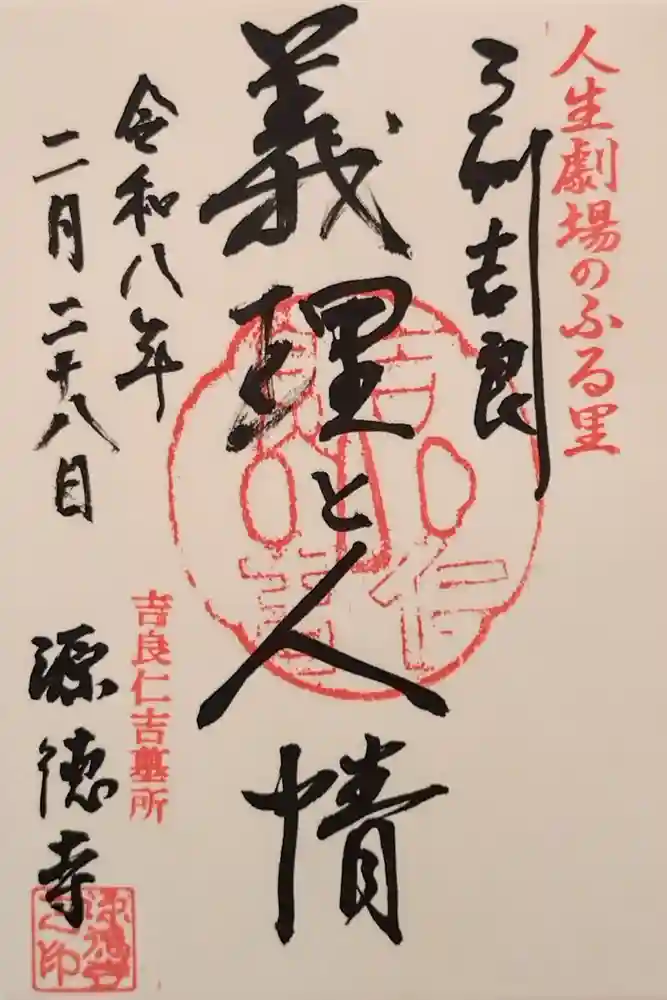 人生劇場のふる里
三州吉良
義理と人情
令和八年
二月二十八日
吉良仁吉墓所
源徳寺
吉良
仁吉